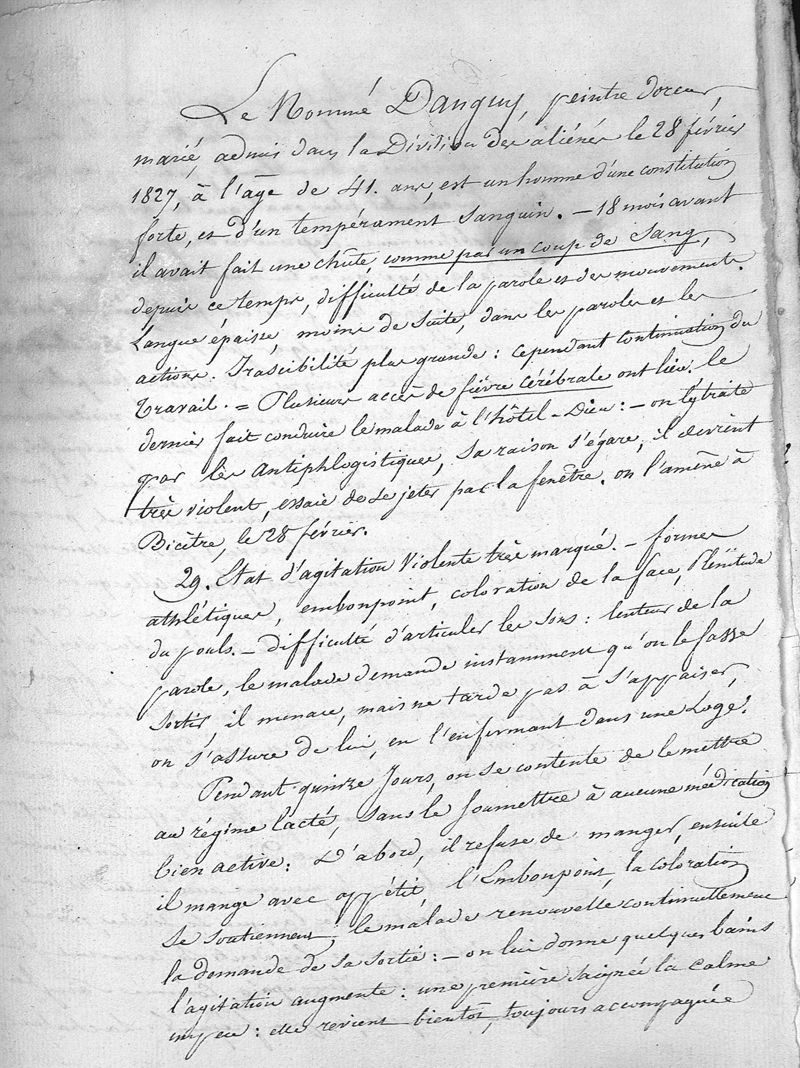 Le Nommé Danguy, peintre doreur,
marié, admis dans la Division des aliénés le 28 février
1827, à l'âge de 41. ans, est un homme d'une constitution
forte, et d'un tempérament sanguin. – 18 mois avant
il avait fait une chûte, comme par un coup de sang,
depuis ce temps, difficulté de la parole et des mouvements.
Langue épaisse, moins de suite, dans les paroles et les
actions. Irascibilité plus grande : cependant continuation du
travail. = Plusieurs accès de fièvre cérébrale ont lieu. le
dernier fait conduire le malade à l'hôtel-Dieu : – on l'y traite
par les Antiphlogistiques, sa raison s'égare, il devient
très violent, essaie de se jeter par la fenêtre. on l'amène à
Bicêtre, le 28 février.
29. Etat d'agitation violente très marqué. – formes
athlétiques, embonpoint, coloration de la face, Plénitude
du pouls. – difficulté d'articuler les sons : lenteur de la
parole, le malade demande instamment qu'on le fasse
sortir, il menace, mais ne tarde pas à s'appaiser,
on s'assure de lui, en l'enfermant dans une Loge.
Pendant quinze Jours, on se contente de le mettre
au régime lacté, sans le soumettre à aucune médication
bien active : D'abord, il refuse de manger, ensuite
il mange avec appétit, l'Embonpoint, la coloration
se soutiennent, le malade renouvelle continuellement
la demande de sa sortie : – on lui donne quelques bains
l'agitation augmente : une première saignée la calme
un peu : elle revient bientôt, toujours accompagnée